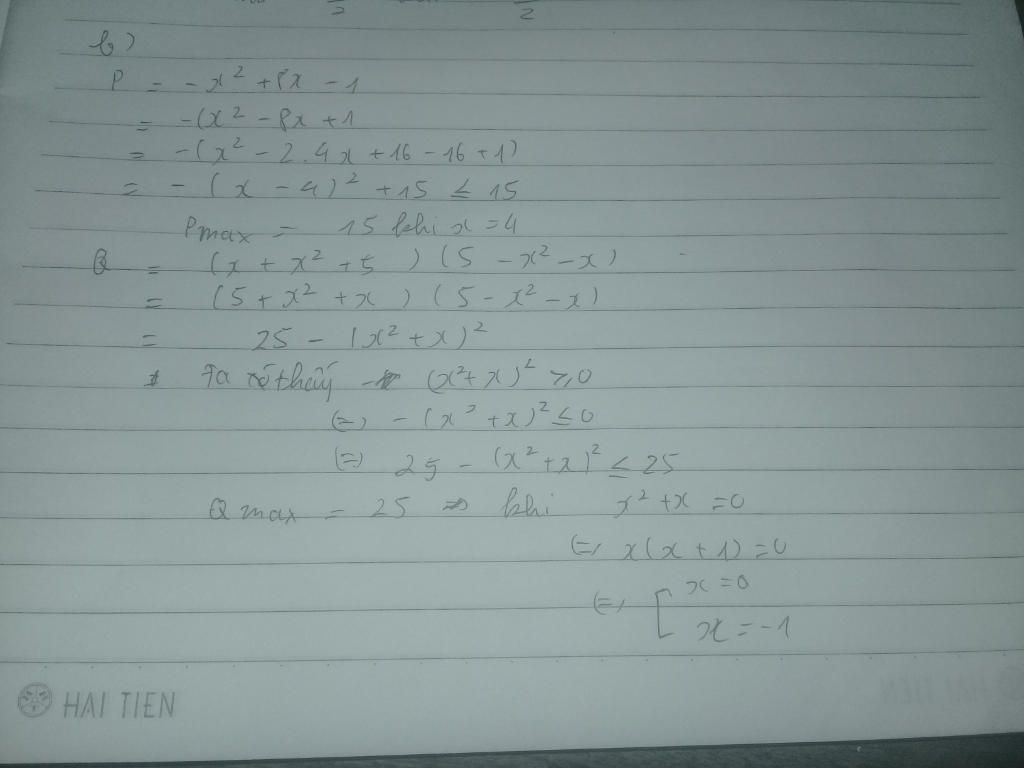 b)
P = -x² + 8x - 1
= -(x² - 8x + 1
= -(x² - 2.4x + 16 - 16 + 1)
= - (x - 4)² + 15 ≤ 15
Pmax = 15 khi x = 4
Q = (x + x² + 5) (5 - x² - x)
= (5 + x² + x) (5 - x² - x)
= 25 - (x² + x)²
Ta có thấy (x² + x)² ≥ 0
(=) - (x² + x)² ≤ 0
(=) 25 - (x² + x)² ≤ 25
Q max = 25 => khi x² + x = 0
(=) x(x + 1) = 0
(=) [ x = 0
x = -1
HAI TIEN